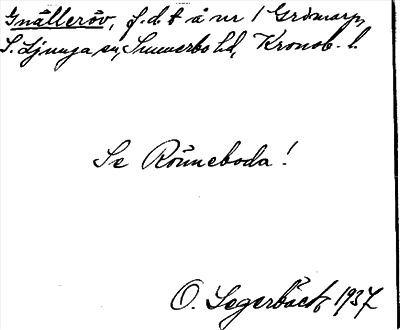 Gnälleröv, f.d. t å nr 1 Grimarp,
S. Ljunga sn, Sunnerbo hd, Kronob. l.
Se Rönneboda!
O. Segerbäck 1937